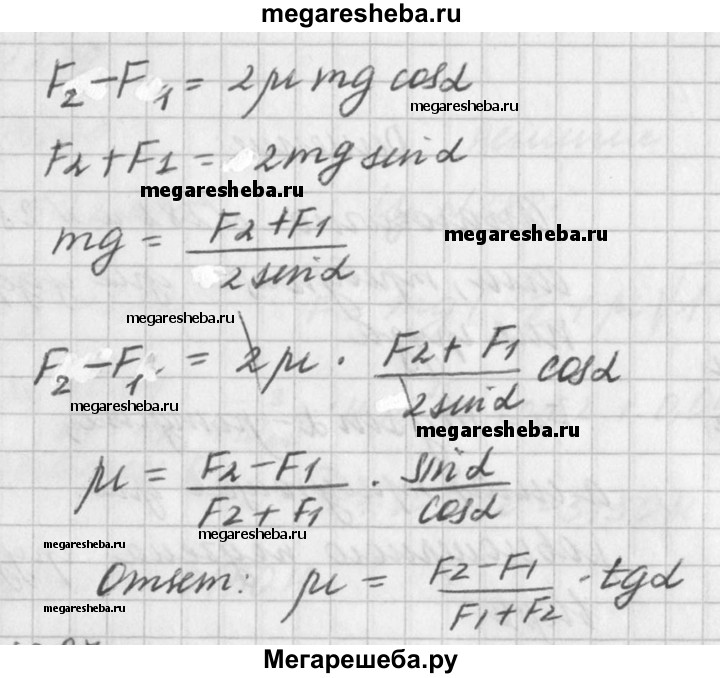 megaresheba.ru
F₂ – F₁ = 2μmg cosα
megaresheba.ru
F₂ + F₁ = 2mg sinα
megaresheba.ru
mg = (F₂ + F₁) / (2 sinα)
megaresheba.ru
megaresheba.ru
F₂ – F₁ = 2μ · (F₂ + F₁) / (2 sinα) cosα
megaresheba.ru
megaresheba.ru
μ = (F₂ – F₁) / (F₂ + F₁) · sinα / cosα
megaresheba.ru
Ответ: μ = (F₂ – F₁) / (F₁ + F₂) · tgα
megaresheba.ru
Мегарешеба.ру